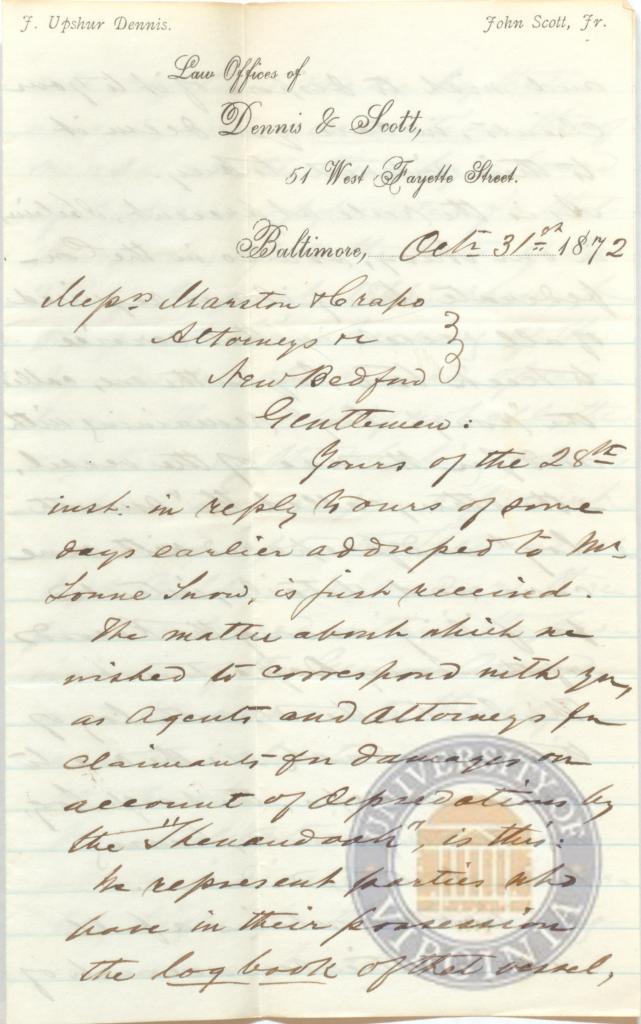 J. Upshur Dennis. John Scott, Jr.
Law Offices of
Dennis & Scott,
51 West Fayette Street.
Baltimore, Octr 31st 1872
Messrs Marston & Crapo
Attorneys &c
New Bedford
Gentlemen:
Yours of the 28th
inst: in reply to ours of some
days earlier addressed to Mr
Snow, is just received.
The matter about which we
wished to correspond with you,
as Agents and Attorneys for
claimants for damages on
account of depredations by
the "Shenandoah", is this:
We represent parties who
have in their possession
the log book of that vessel,
UNIVERSITY OF VIRGINIA